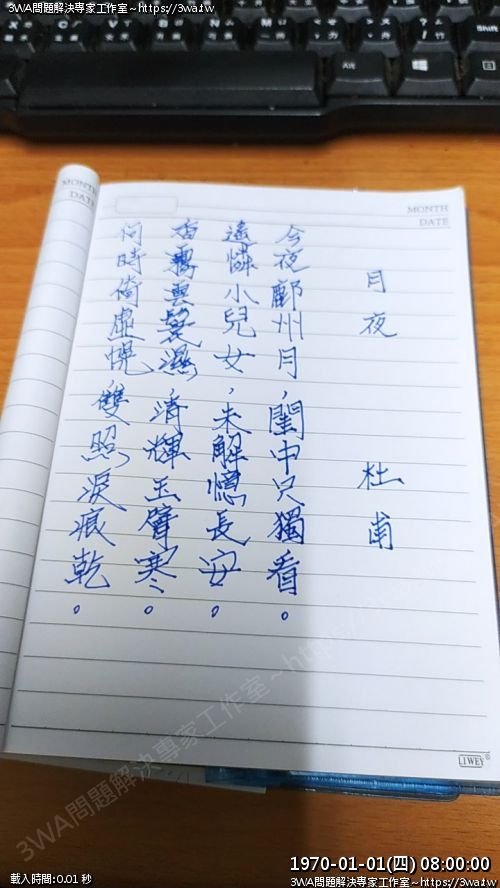 3WA問題解決專家工作室~https://3wa.tw
3WA問題解決專家工作室~https://3wa.tw
Alt
Alt
Shift
MONTH
DATE
MONTH
DATE
月夜 杜甫
今夜鄜州月,閨中只獨看。
遠憐小兒女,未解憶長安。
香霧雲鬟濕,清輝玉臂寒。
何時倚虛幌,雙照淚痕乾。
LIWEY
3WA問題解決專家工作室~https://3wa.tw
1970-01-01(四) 08:00:00
載入時間:0.01 秒
3WA問題解決專家工作室~https://3wa.tw